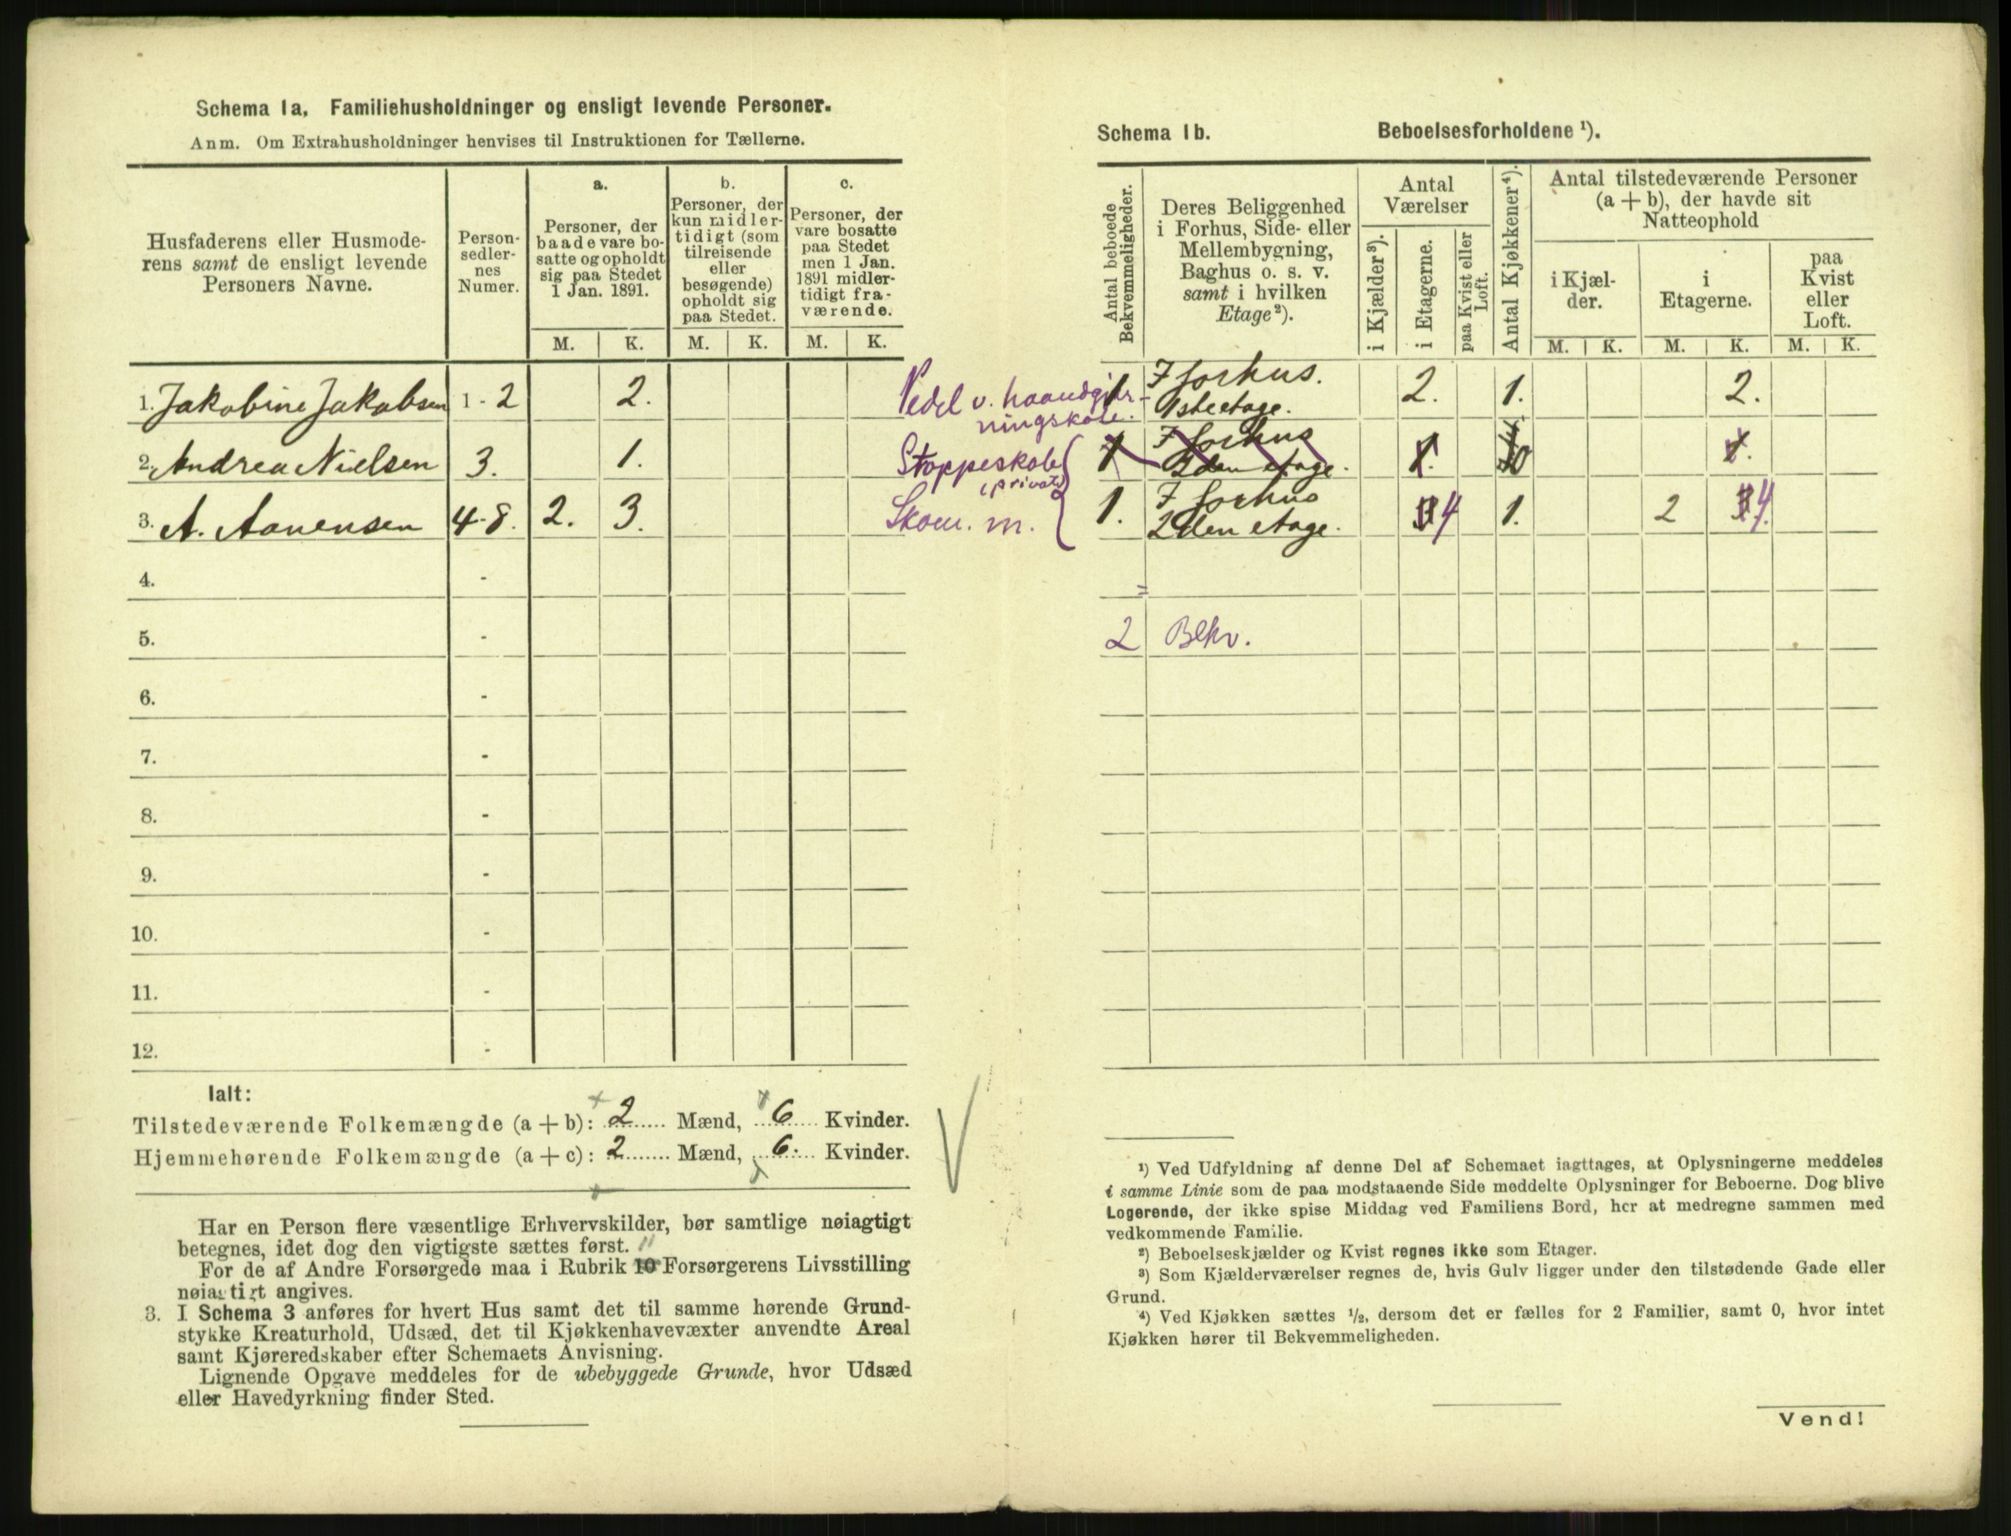 Schema 1a. Familiehusholdninger og ensligt levende Personer.
Anm. Om Extrahusholdninger henvises til Instruktionen for Tællerne.
Husfaderens eller Husmode-
rens samt de ensligt levende
Personers Navne.
Person-
sedler-
nes
Numer.
a.
Personer, der
baade vare bo-
satte og opholdt
sig paa Stedet
1 Jan. 1891.
b.
Personer, der
kun midler-
tidigt (som
tilreisende
eller
besøgende)
opholdt sig
paa Stedet.
c.
Personer, der
vare bosatte
paa Stedet
men 1 Jan.
1891 midler-
tidigt fra-
værende.
M. K. M. K. M. K.
1. Jakobine Jakobsen 1-2 2.
2. Andrea Nielsen 3. 1.
3. A. Aanensen 4-8. 2. 3.
4. -
5. -
6. -
7. -
8. -
9. -
10. -
11. -
12. -
Ialt:
Tilstedeværende Folkemængde (a + b): 2 Mænd, 6 Kvinder.
Hjemmehørende Folkemængde (a + c): 2 Mænd, 6. Kvinder.
Har en Person flere væsentlige Erhvervskilder, bør samtlige nøiagtigt
betegnes, idet dog den vigtigste sættes først. 11
For de af Andre Forsørgede maa i Rubrik 10 Forsørgerens Livsstilling
nøiagtigt angives.
3. I Schema 3 anføres for hvert Hus samt det til samme hørende Grund-
stykke Kreaturhold, Udsæd, det til Kjøkkenhavevæxter anvendte Areal
samt Kjøreredskaber efter Schemaets Anvisning.
Lignende Opgave meddeles for de ubebyggede Grunde, hvor Udsæd
eller Havedyrkning finder Sted.
Vedel v. haandgjer-
ningskole.
Stoppeskole
(privat)
Skom. m.
Schema 1b. Beboelsesforholdene ¹).
Antal beboede
Bekvemmeligheder.
Deres Beliggenhed
i Forhus, Side- eller
Mellembygning,
Baghus o. s. v.
samt i hvilken
Etage²).
Antal
Værelser
i Kjælder³).
i Etagerne.
paa Kvist eller
Loft.
Antal Kjøkkener⁴).
Antal tilstedeværende Personer
(a + b), der havde sit
Natteophold
i Kjæl-
der.
i
Etagerne.
paa
Kvist
eller
Loft.
M. K. M. K. M. K.
1 I forhus.
1ste etage. 2. 1. 2.
1 I forhus
2den etage. 1. 0 1.
1. I forhus
2den etage. 4 1. 2 4.
2 Bekv.
¹) Ved Udfyldning af denne Del af Schemaet iagttages, at Oplysningerne meddeles
i samme Linie som de paa modstaaende Side meddelte Oplysninger for Beboerne. Dog blive
Logerende, der ikke spise Middag ved Familiens Bord, her at medregne sammen med
vedkommende Familie.
²) Beboelseskjælder og Kvist regnes ikke som Etager.
³) Som Kjælderværelser regnes de, hvis Gulv ligger under den tilstødende Gade eller
Grund.
⁴) Ved Kjøkken sættes ¹/₂, dersom det er fælles for 2 Familier, samt 0, hvor intet
Kjøkken hører til Bekvemmeligheden.
Vend!